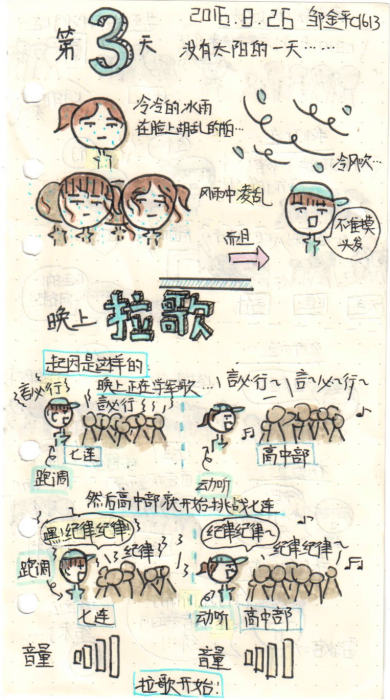 2016.8.26 邹金平C1613
第3天
没有太阳的一天……
冷冷的冰雨
在脸上胡乱的拍…
冷风吹…
风雨中凌乱
而且
不准摸
头发
晚上 拉歌
起因是这样的:
晚上正在学军歌…
言必行
言必行
言必行~
言~必~行~
七连
高中部
跑调
动听
然后高中部就开始挑战七连
嘿!纪律纪律!
纪律
纪律纪律~
纪律纪律~
跑调
七连
动听
高中部
音量
音量
拉歌开始: